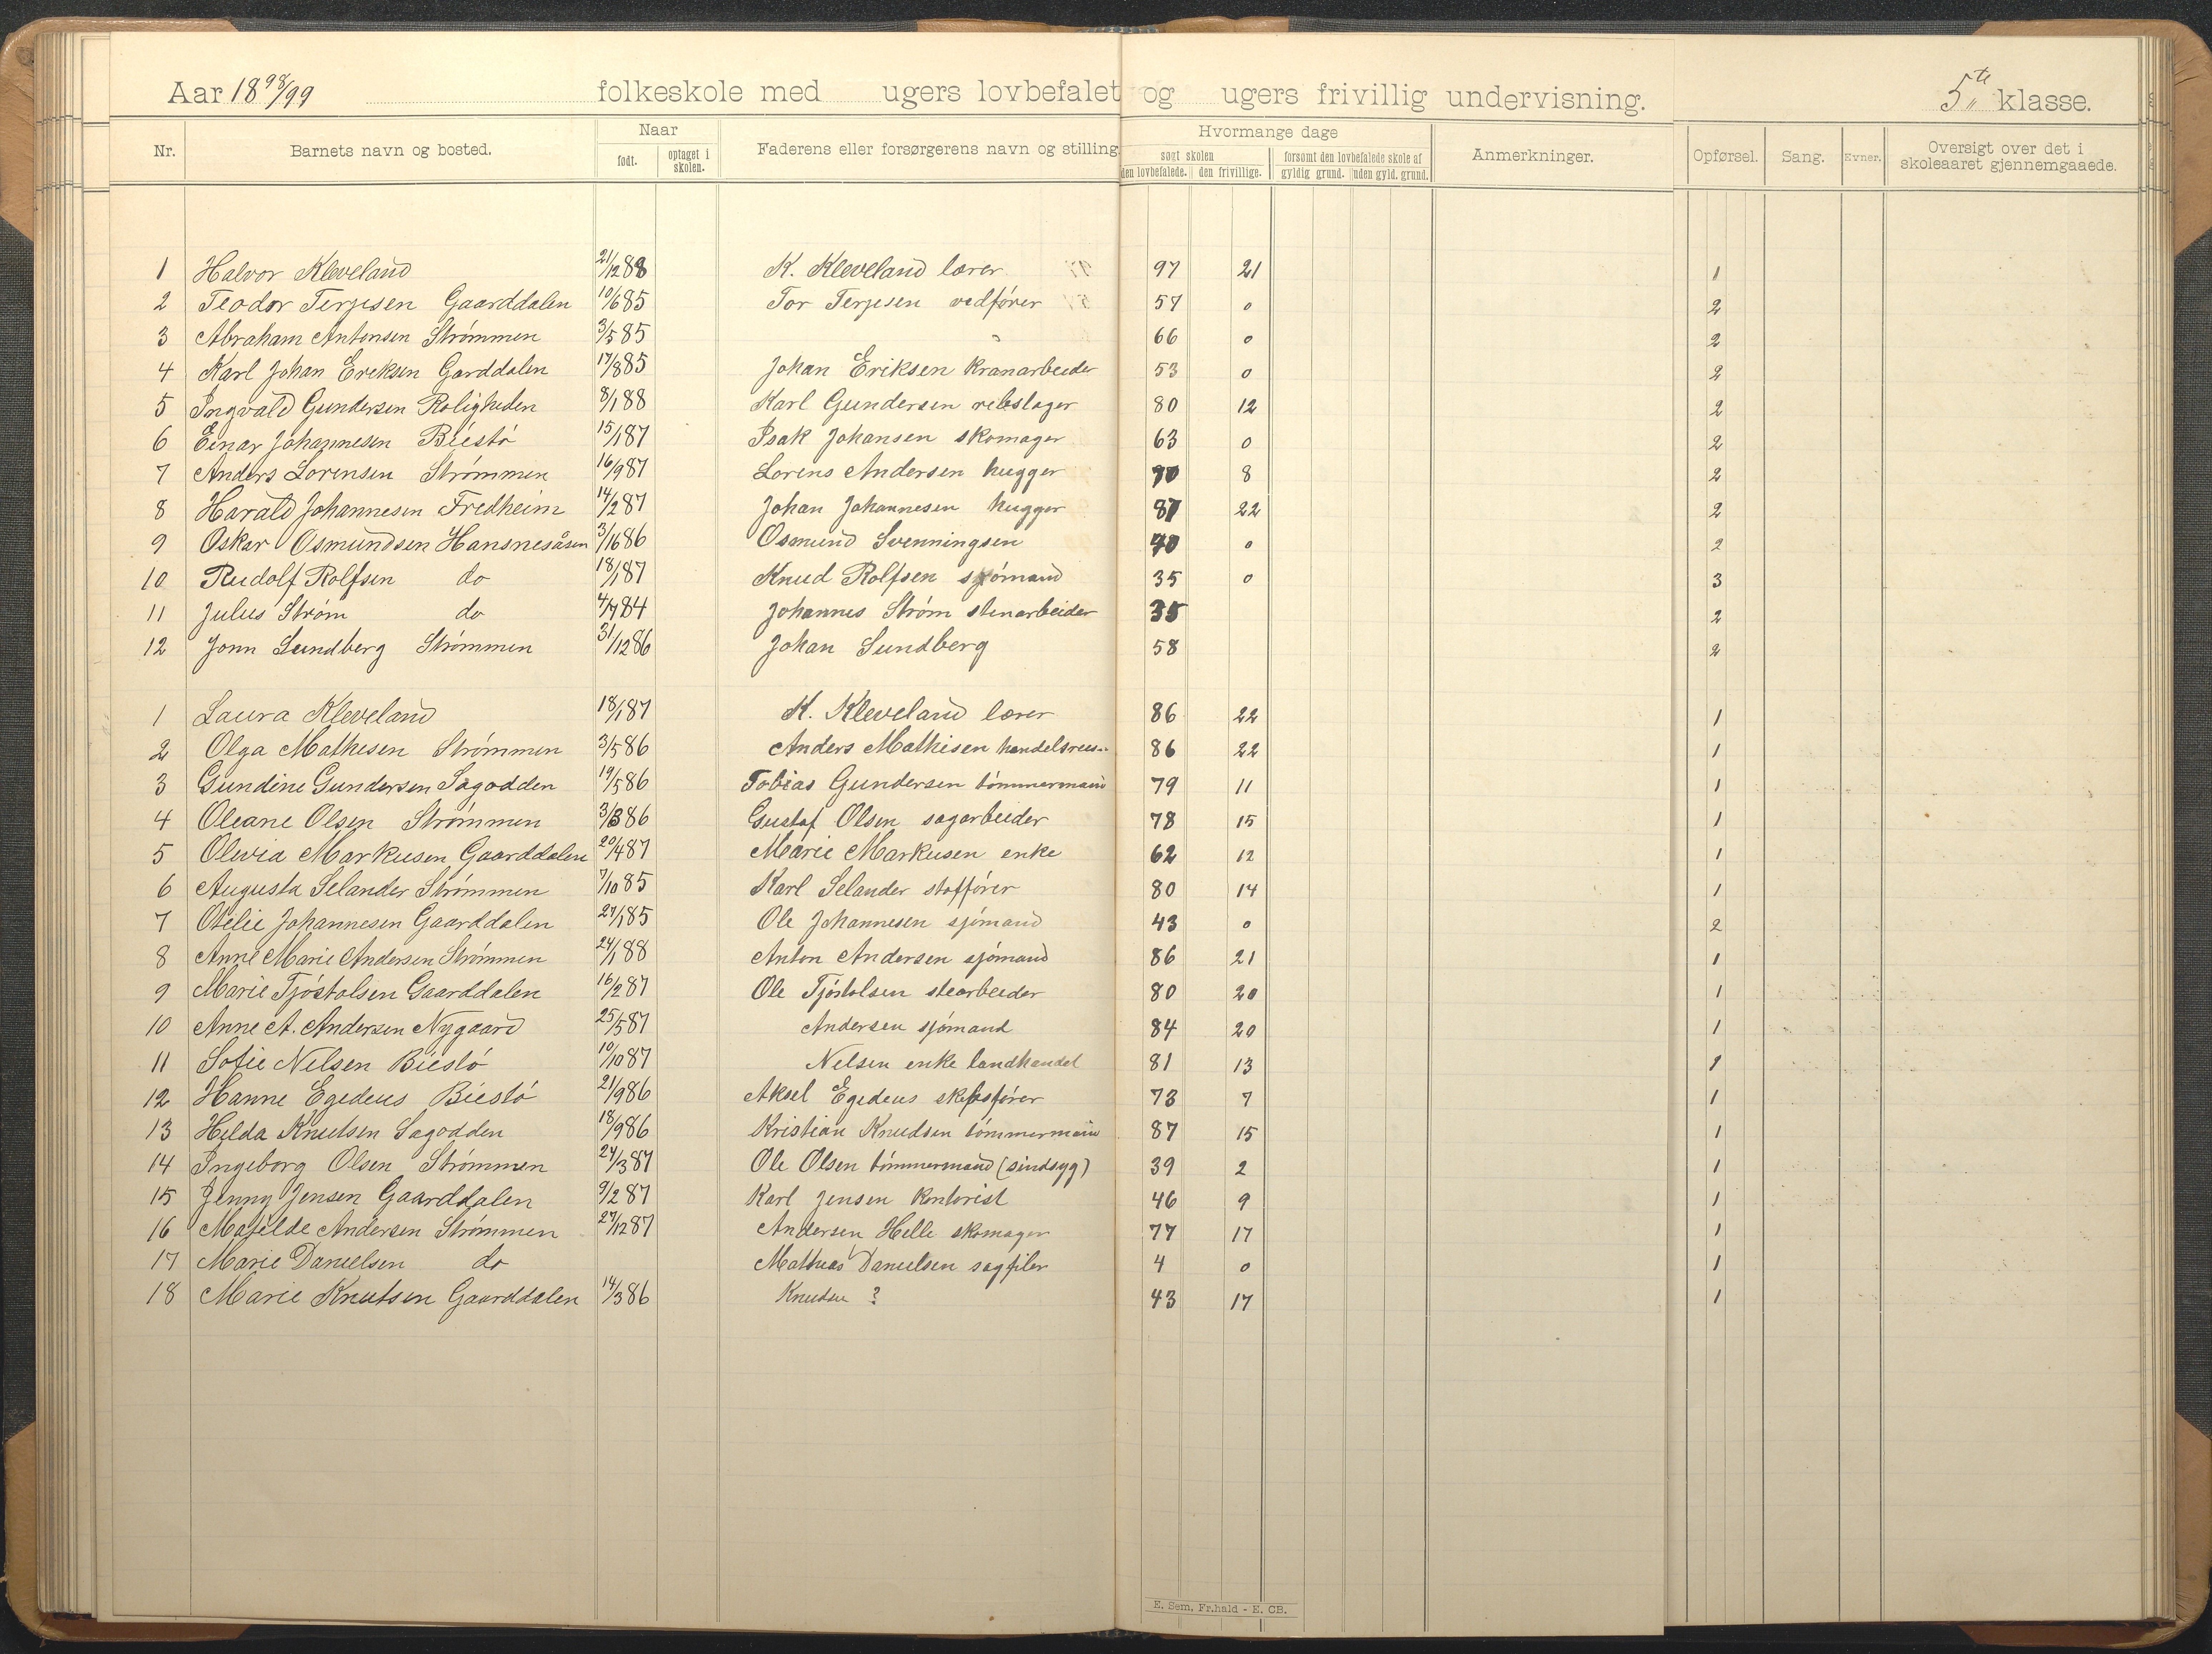 Aar 18 98/99 folkeskole med ugers lovbefalet og ugers frivillig undervisning. 5te klasse.
Nr. Barnets navn og bosted. Naar født. optaget i skolen. Faderens eller forsørgerens navn og stilling Hvormange dage søgt skolen den lovbefalede. den frivillige. forsømt den lovbefalede skole af gyldig grund. uden gyld. grund. Anmerkninger. Opførsel. Sang. Evner. Oversigt over det i skoleaaret gjennemgaaede.
1 Halvor Kleveland 21/12 88 K. Kleveland lærer 97 21 1
2 Teodor Terjesen Gaarddalen 10/6 85 Tor Terjesen vedfører 57 0 2
3 Abraham Antonsen Strømmen 3/5 85 66 0 2
4 Karl Johan Ereksen Garddalen 17/8 85 Johan Eriksen Kranarbeider 53 0 2
5 Ingvald Gundersen Roligheden 8/1 88 Karl Gundersen rebslager 80 12 2
6 Einar Johannesen Biestø 15/1 87 Isak Johansen skomager 63 0 2
7 Anders Lorensen Strømmen 16/9 87 Lorens Andersen hugger 90 8 2
8 Harald Johannesen Fredheim 14/2 87 Johan Johannesen hugger 87 22 2
9 Oskar Osmundsen Hansnesåsen 3/16 86 Osmund Svenningsen 90 0 2
10 Rudolf Rolfsen do 18/1 87 Knud Rolfsen sjømand 35 0 3
11 Julus Strøm do 4/7 84 Johannes Strøm stenarbeider 35 2
12 Jonn Sundberg Strømmen 31/12 86 Johan Sundberg 58 2
1 Laura Kleveland 18/1 87 K. Kleveland lærer 86 22 1
2 Olga Mathesen Strømmen 3/5 86 Anders Mathisen handelsreis.. 86 22 1
3 Gundine Gundersen Sagodden 19/5 86 Tobias Gundersen tømmermand 79 11 1
4 Oleane Olsen Strømmen 3/8 86 Gustaf Olsen sagarbeider 78 15 1
5 Olevia Markusen Gaarddalen 20/4 87 Marie Markusen enke 62 12 1
6 Augusta Selander Strømmen 7/10 85 Karl Selander stoffører 80 14 1
7 Otelie Johannesen Gaarddalen 27/1 85 Ole Johannesen sjømand 43 0 2
8 Anne Marie Andersen Strømmen 24/1 88 Anton Andersen sjømand 86 21 1
9 Marie Tjøstolsen Gaarddalen 16/2 87 Ole Tjøstolsen stearbeider 80 20 1
10 Anne A. Andersen Nygaard 25/5 87 Andersen sjømand 84 20 1
11 Sofie Nelsen Biestø 10/10 87 Nelsen enke landhandel 81 13 1
12 Hanne Egedeus Biestø 21/9 86 Aksel Egedeus skibsfører 73 7 1
13 Helda Knutsen Sagodden 18/9 86 Kristian Knudsen tømmermand 87 15 1
14 Ingeborg Olsen Strømmen 24/3 87 Ole Olsen tømmermand (sindsyg) 39 2 1
15 Jenny Jensen Gaarddalen 9/2 87 Karl Jensen Kontorist 46 9 1
16 Matelde Andersen Strømmen 27/12 87 Andersen Helle skomager 77 17 1
17 Marie Danielsen do Mathias Danielsen sagfiler 4 0 1
18 Marie Knutsen Gaarddalen 14/3 86 Knudsen ? 43 17 1
E. Sem, Fr.hald - E. CB.